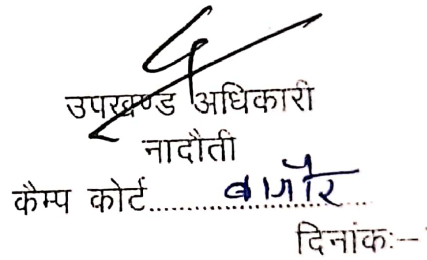 उपखण्ड अधिकारी
नादौती
कैम्प कोर्ट......................
दिनांकः--